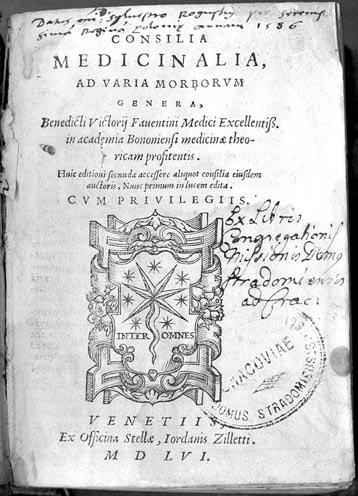 CONSILIA
MEDICINALIA,
AD VARIA MORBORVM
GENERA,
Benedicti Victorij Fauentini Medici Excellentiß.
in academia Bononiensi medicinæ theo-
ricam profitentis.
Huic editioni secundæ accessere aliquot consilia eiusdem
auctoris, Nunc primum in lucem edita.
CVM PRIVILEGIIS.
Ex Libris
Congregationis
Missionis Domus
Stradomiensis
ad Crac:
INTER OMNES
CRACOVIAE
DOMUS STRADOMIENSIS
VENETIIS,
Ex Officina Stellæ, Iordanis Zilletti.
M D LVI.